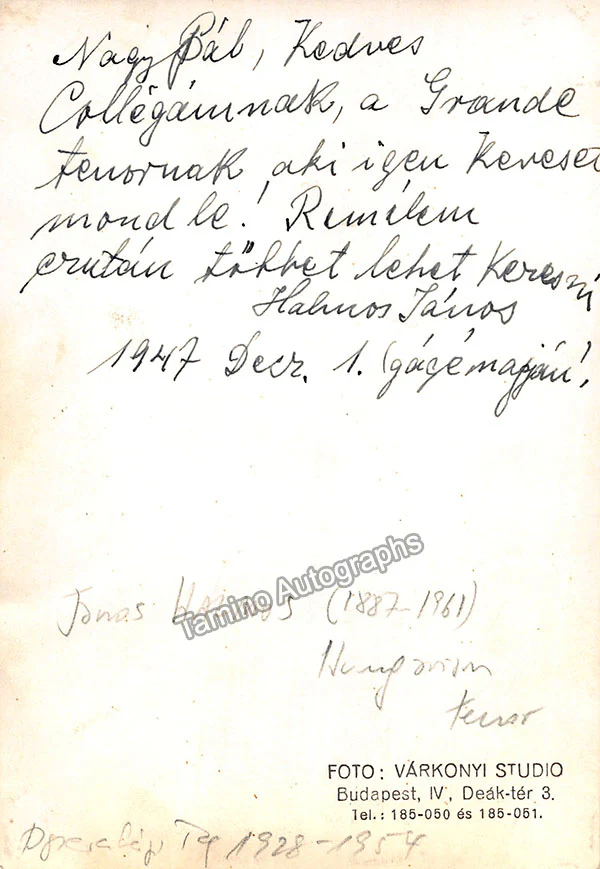 Nagy Pál, Kedves
Collégámnak, a Grande
tenornak, aki igen keveset
mond le! Remélem
ezután többet lehet Keresni
Halmos János
1947 Decz. 1. (gázsé napján!
Tamino Autographs
Janos Halmos (1887-1961)
Hungarian
tenor
FOTO: VÁRKONYI STUDIO
Budapest, IV, Deák-tér 3.
Tel.: 185-050 és 185-051.
Tag 1928-1954